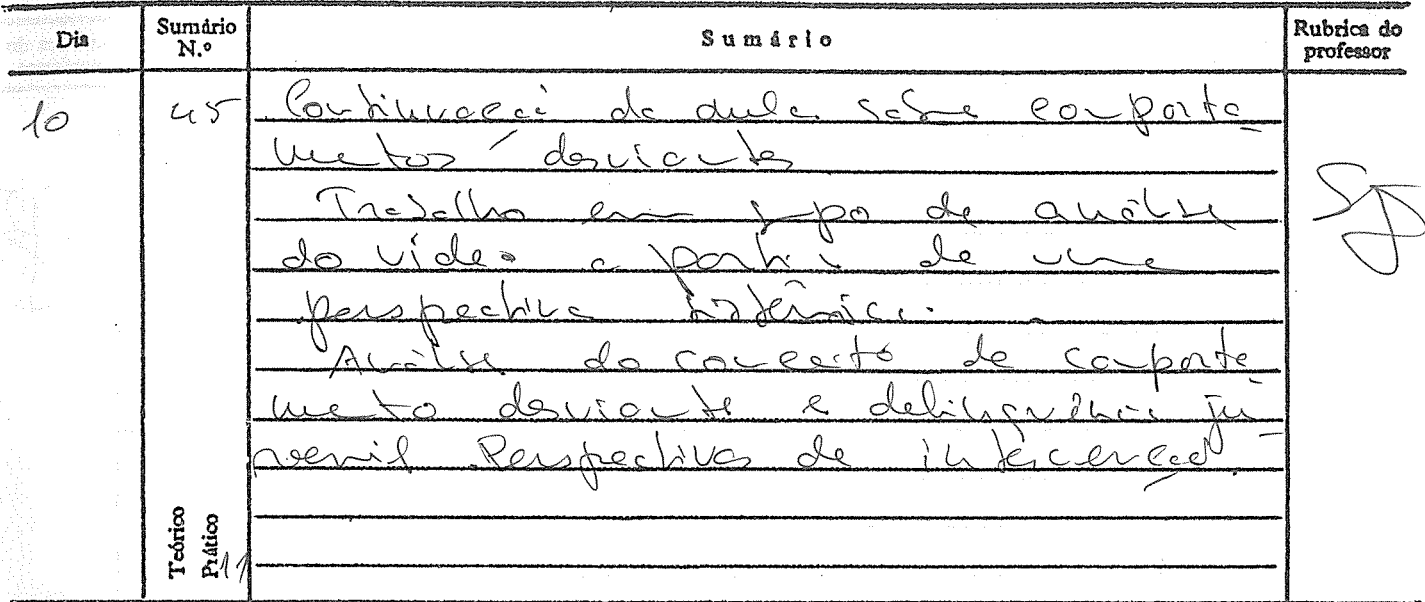 Dia Sumário N.º Sumário Rubrica do professor
10 45 Continuação da aula sobre comporta
mentos desviantes
Trabalho em grupo de análise
do vídeo a partir de uma
perspectiva sistémica.
Análise do conceito de comporta
mento desviante e delinquência ju
venil. Perspectivas de intervenção.
Teórico
Prático 11